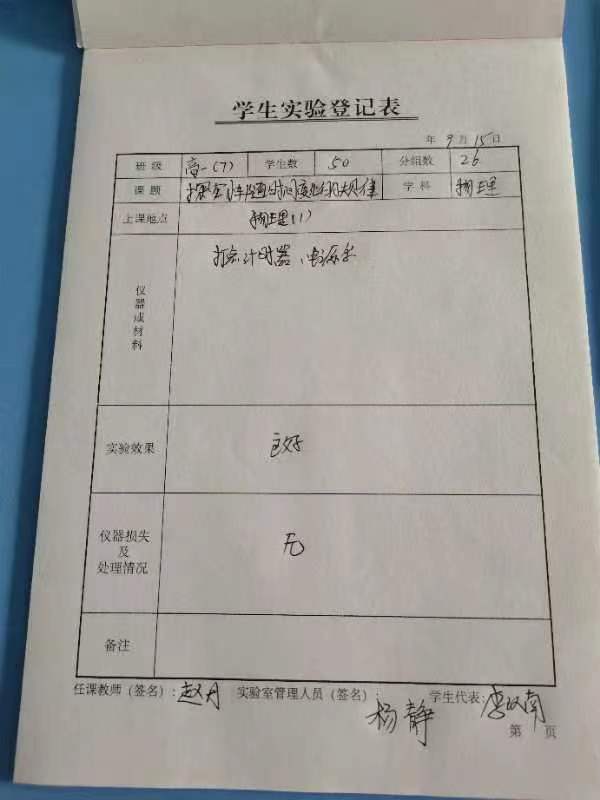 学生实验登记表
年 9 月 15 日
班 级 高一(7) 学生数 50 分组数 26
课 题 探究小车速度随时间变化的规律 学 科 物理
上课地点 物理(1)
仪器或材料 打点计时器、电源等
实验效果 良好
仪器损失及处理情况 无
备注
任课教师（签名）: 赵月 实验室管理人员（签名）: 杨静 学生代表: 李
第 页